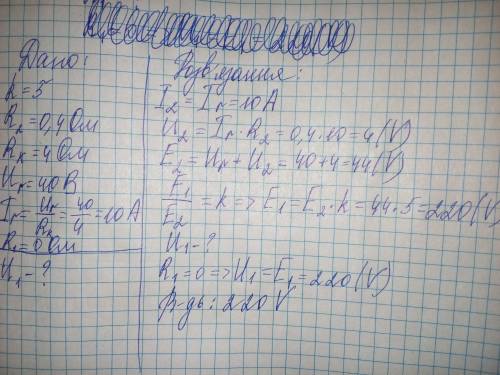 Дано:
k=5
R₂=0,4 Ом
Rк=4 Ом
Uк=40В
Iк=Uк/Rк=40/4=10А
R₁=0 Ом
U₁-?
Розв'язання:
I₂=Iк=10А
U₂=Iк·R₂=0,4·10=4(V)
E₂=Uк+U₂=40+4=44(V)
E₁/E₂=k=>E₁=E₂·k=44·5=220(V)
U₁-?
R₁=0=>U₁=E₁=220(V)
В-дь: 220V